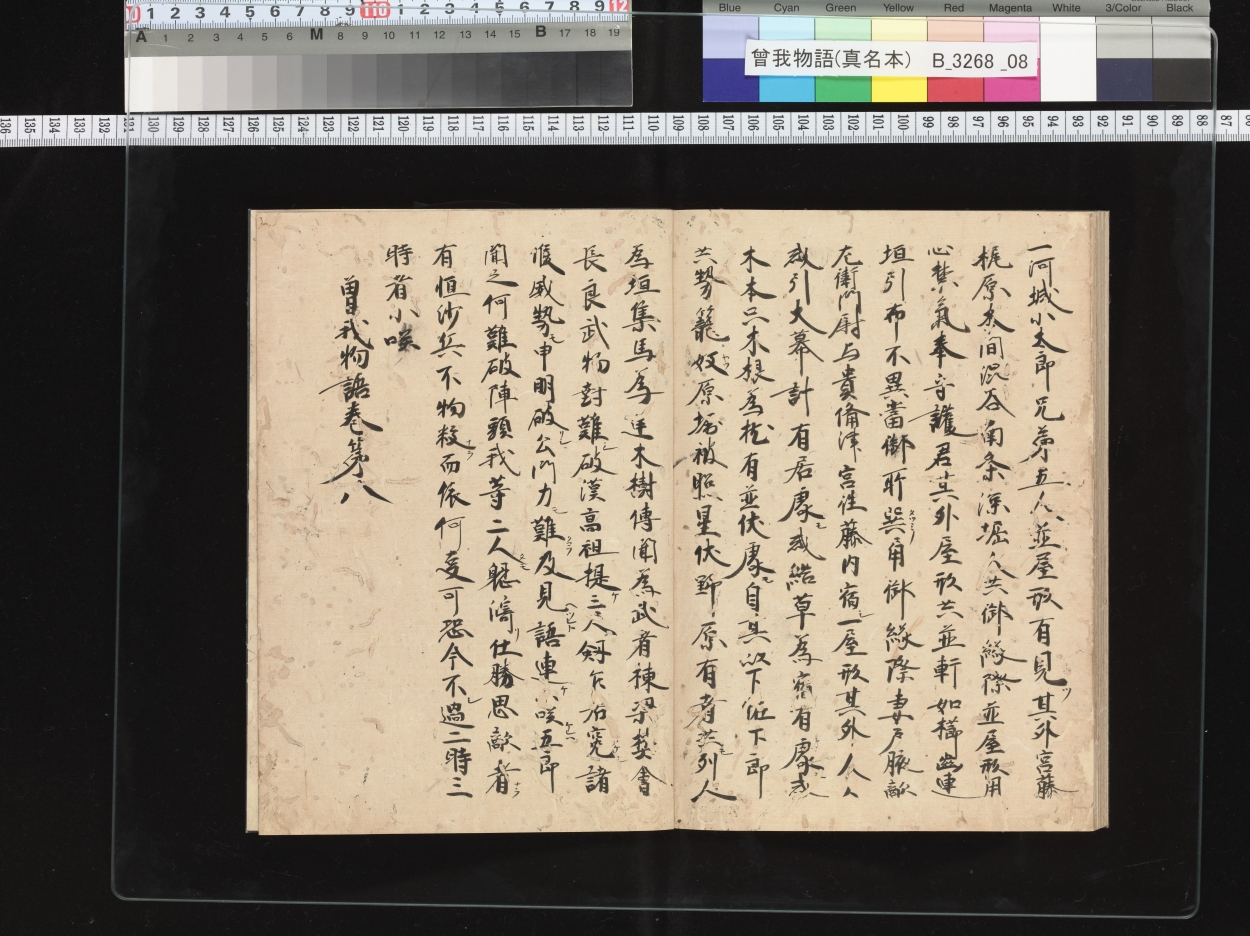 曾我物語(真名本) B_3268_08
一河城小太郎兄弟五人並屋形有見其外宮藤
梶原本間渋谷南条深堀人共御縁際並屋形用
心禁気奉守護君其外屋形共並軒如櫛歯連
垣引布不異當御所巽角御縁際妻戸腋敵
左衛門尉与貴備津宮往藤内宿一屋形其外人々
或引大幕計有居處或結草為宿有處或
木本只木根為枕有並伏處自其以下任下郎
共勢籠奴原被照星伏野原有者共列人
為垣集馬為逆木樹傳聞為武者棟梁樊會
長良武物封難破漢高祖提三人剱乍居寃諸
侯威勢申明破公門力難及見語連咲五郎
聞之何難破陣頭我等二人懸濤仕勝思敵者
有恒沙兵不物数而依何憂可恐今不過二時三
時者小咲
曽我物語巻第八